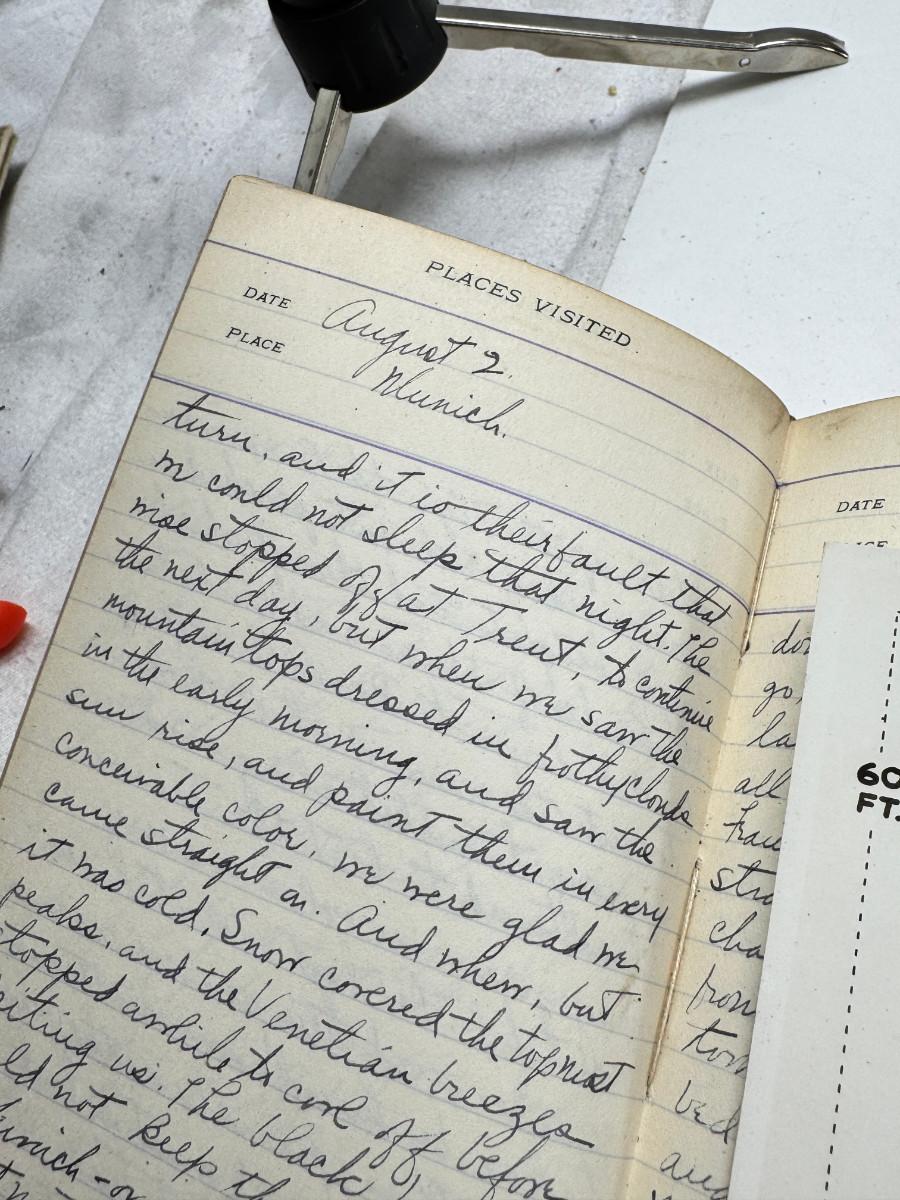 PLACES VISITED
DATE August 2.
PLACE Munich.
turn, and it is their fault that
we could not sleep that night. The
wise stopped off at Trent, to continue
the next day, but when we saw the
mountain tops dressed in frothy clouds
in the early morning, and saw the
sun rise, and paint them in every
conceivable color, we were glad we
came straight on. And whew, but
it was cold. Snow covered the topmost
peaks, and the Venetian breezes
stopped awhile to cool off before
us. The black
not keep
DATE
go
la
all
stra
cha
from
tom
bed
60
FT.